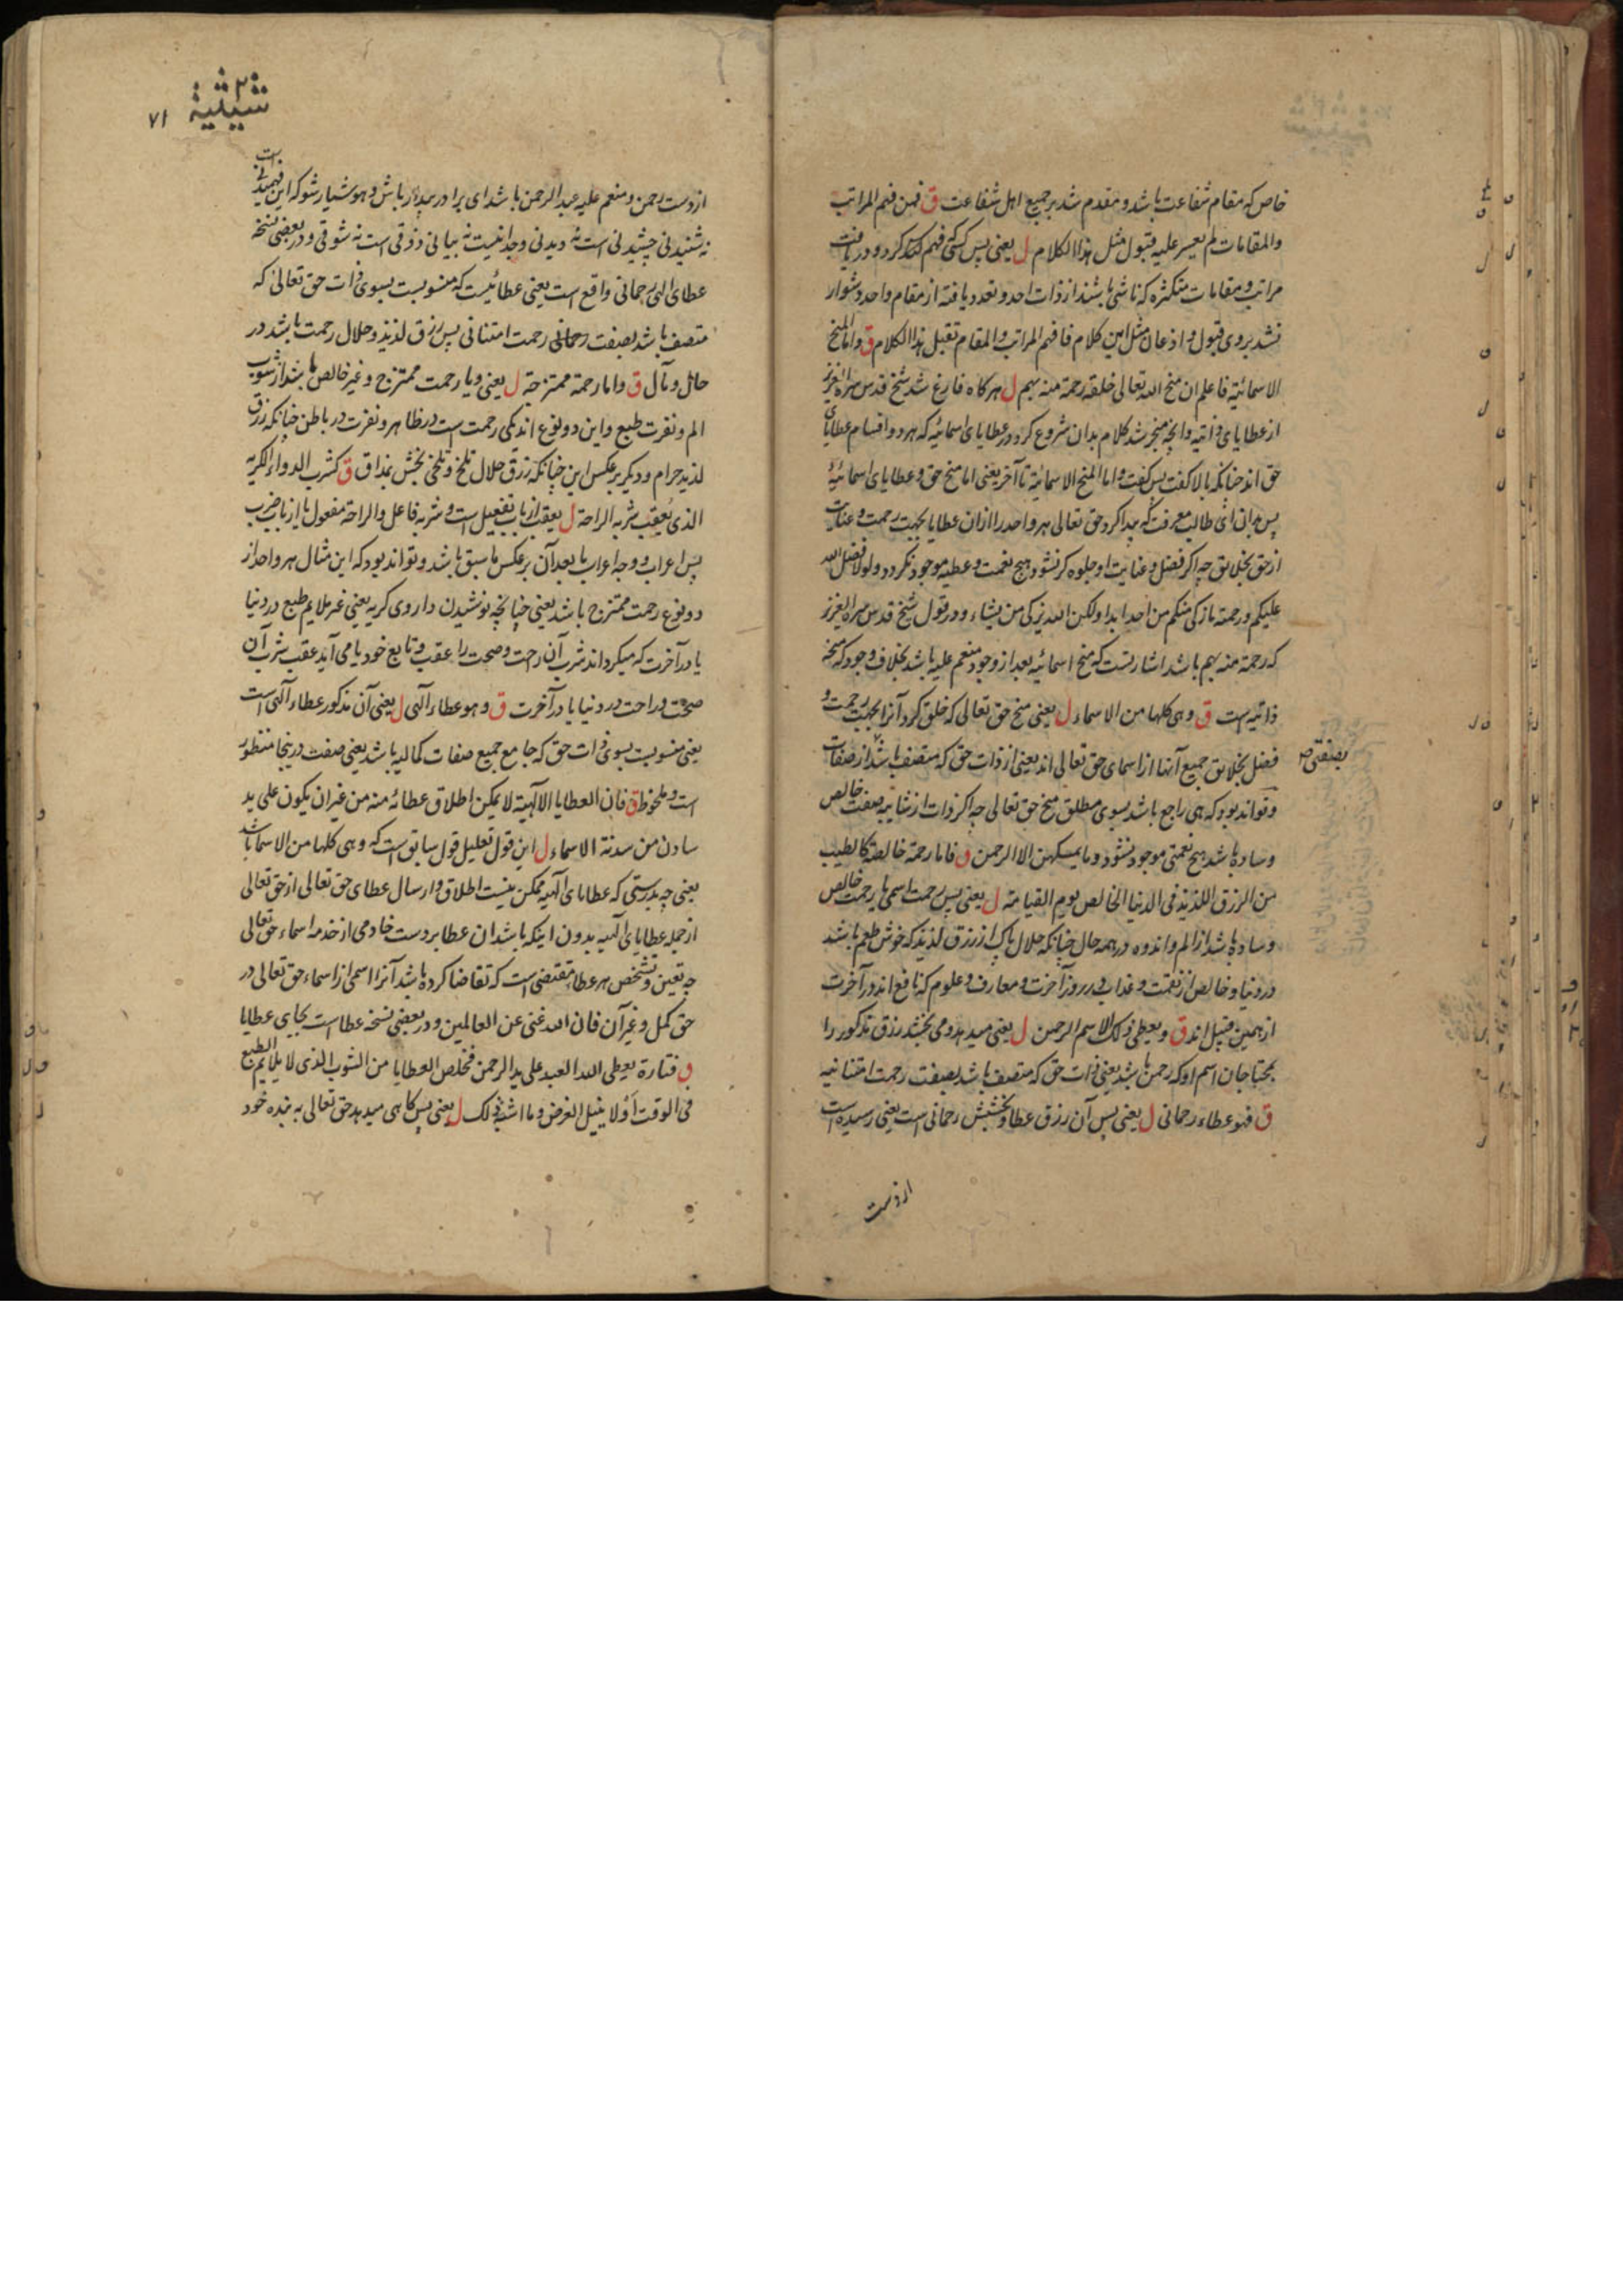 خاص که مقام شفاعت باشد و مقدم شد بر جمیع اهل شفاعت ق فمن فهم المراتب
والمقامات لم یعسر علیه قبول مثل هذا الکلام ل یعنی پس کسی فهم کند و دریافت
مراتب و مقامات متکثره که ناشی باشند از ذات احد و تعدد یافته از مقام واحد دشوار
نشد بروی قبول و اذعان مثل این کلام فافهم المراتب والمقام تقبل هذا الکلام ق واما المنح
الاسمائیة فاعلم ان منح الله تعالی خلقه رحمة منه بهم ل هرکاه فارغ شد شیخ قدس سره العزیز
از عطایای ذاتیه وانچه منجر شد کلام بدان شروع کرد در عطایای اسمائیه که هر دو اقسام عطایای
حق اند چنانکه بالا کفت پس کفت واما المنح الاسمائیة تا آخر یعنی اما منح حق و عطایای اسمائیهٔ
پس بدان ای طالب معرفت که پیدا کرد حق تعالی هر واحد را ازان عطایا بجهت رحمت و عنایت
از حق بخلایق چه اکر فضل و عنایت او جلوه کر نشود هیچ نعمت و عطیه موجود نکردد ولولا فضل الله
علیکم ورحمته ما زکی منکم من احد ابدا ولکن الله یزکی من یشاء و در قول شیخ قدس سره العزیز
که رحمة منه بهم باشد اشارتست که منح اسمائیه بعد از وجود منعم علیه باشد بخلاف وجود که منحه
ذاتیه است ق وهی کلها من الاسماء ل یعنی منح حق تعالی که خلق کرد آنرا بجهت رحمت و
فضل بخلایق جمیع آنها از اسمای حق تعالی اند یعنی از ذات حق که متصف باشد از صفات
بصفتی صح
وتواند بود که هی راجع باشد بسوی مطلق منح حق تعالی چه اکر ذات از شایبه صفت خالص
وساده باشد هیچ نعمتی موجود نشود وما یمسکهن الا الرحمن ق فاما رحمة خالصة کالطیب
من الرزق اللذیذ فی الدنیا الخالص یوم القیامة ل یعنی پس رحمت اسمی یا رحمت خالص
وساده باشد از الم واندوه در همه حال چنانکه حلال پاک از رزق لذیذ که خوش طعم باشد
در دنیا و خالص از نقمت و عذاب در روز آخرت و معارف و علوم که نافع اند در آخرت
از همین قبیل اند ق ویعطی ذلک الاسم الرحمن ل یعنی میدهد و می بخشد رزق مذکور را
بمحتاجان اسم او که رحمن باشد یعنی ذات حق که متصف باشد بصفت رحمت امتنانیه
ق فهو عطاء رحمانی ل یعنی پس آن رزق عطا و بخشش رحمانی است یعنی رسیده است
از دست
شیثیة
۷۱
از دست رحمن و منعم علیه عبدالرحمن باشد ای برادر بیدار باش و هوشیار شو که این فهمیدنی است
نه شنیدنی چشیدنی است نه دیدنی وجدانیست نه بیانی ذوقی است نه شوقی و در بعضی نسخه
عطای الهی رحمانی واقع است یعنی عطائیست که منسوبست بسوی ذات حق تعالی که
متصف باشد بصفت رحمانی رحمت امتنانی پس رزق لذیذ و حلال رحمت باشد در
حال و مآل ق واما رحمة ممتزجة ل یعنی و یا رحمت ممتزج و غیر خالص باشد از شوب
الم و نفرت طبع و این دو نوع اند یکی رحمت است در ظاهر و نفرت در باطن چنانکه رزق
لذیذ حرام و دیکر بر عکس این چنانکه رزق حلال تلخ و تلخی بخش بمذاق ق کشرب الدواء الکریه
الذی یعقب شربه الراحة ل یعقب از باب تفعیل است و شربه فاعل والراحة مفعول یا از باب ضرب
پس اعراب و وجه اعراب ما بعد آن بر عکس ما سبق باشد و تواند بود که این مثال هر واحد از
دو نوع رحمت ممتزج باشد یعنی چنانچه نوشیدن داروی کریه یعنی غیر ملایم طبع در دنیا
یا در آخرت که میکرداند شرب آن راحت و صحت را عقب و تابع خود یا می آید عقب شرب آن
صحت و راحت در دنیا یا در آخرت ق وهو عطاء الهی ل یعنی آن مذکور عطاء الهی است
یعنی منسوبست بسوی ذات حق که جامع جمیع صفات کمالیه باشد یعنی صفت درینجا منظور
است و ملحوظ ق فان العطایا الالهیة لا یمکن اطلاق عطائه منه من غیر ان یکون علی ید
سادن من سدنة الاسماء ل این قول تعلیل قول سابق است که وهی کلها من الاسماء باشد
یعنی چه بدرستی که عطایای الهیه ممکن نیست اطلاق و ارسال عطای حق تعالی از حق تعالی
از جمله عطایای الهیه بدون اینکه باشد ان عطا بر دست خادمی از خدمه اسماء حق تعالی
چه تعین و تشخص هر عطا مقتضی است که تقاضا کرده باشد آنرا اسمی از اسماء حق تعالی در
حق کمل و غیر آن فان الله غنی عن العالمین و در بعضی نسخه عطا است بجای عطایا
ق فتارة یعطی الله العبد علی ید الرحمن فخلص العطایا من الشوب الذی لا یلایم الطبع
فی الوقت اولا ینیل الغرض وما اشبه ذلک ل یعنی پس کاهی میدهد حق تعالی به بنده خود